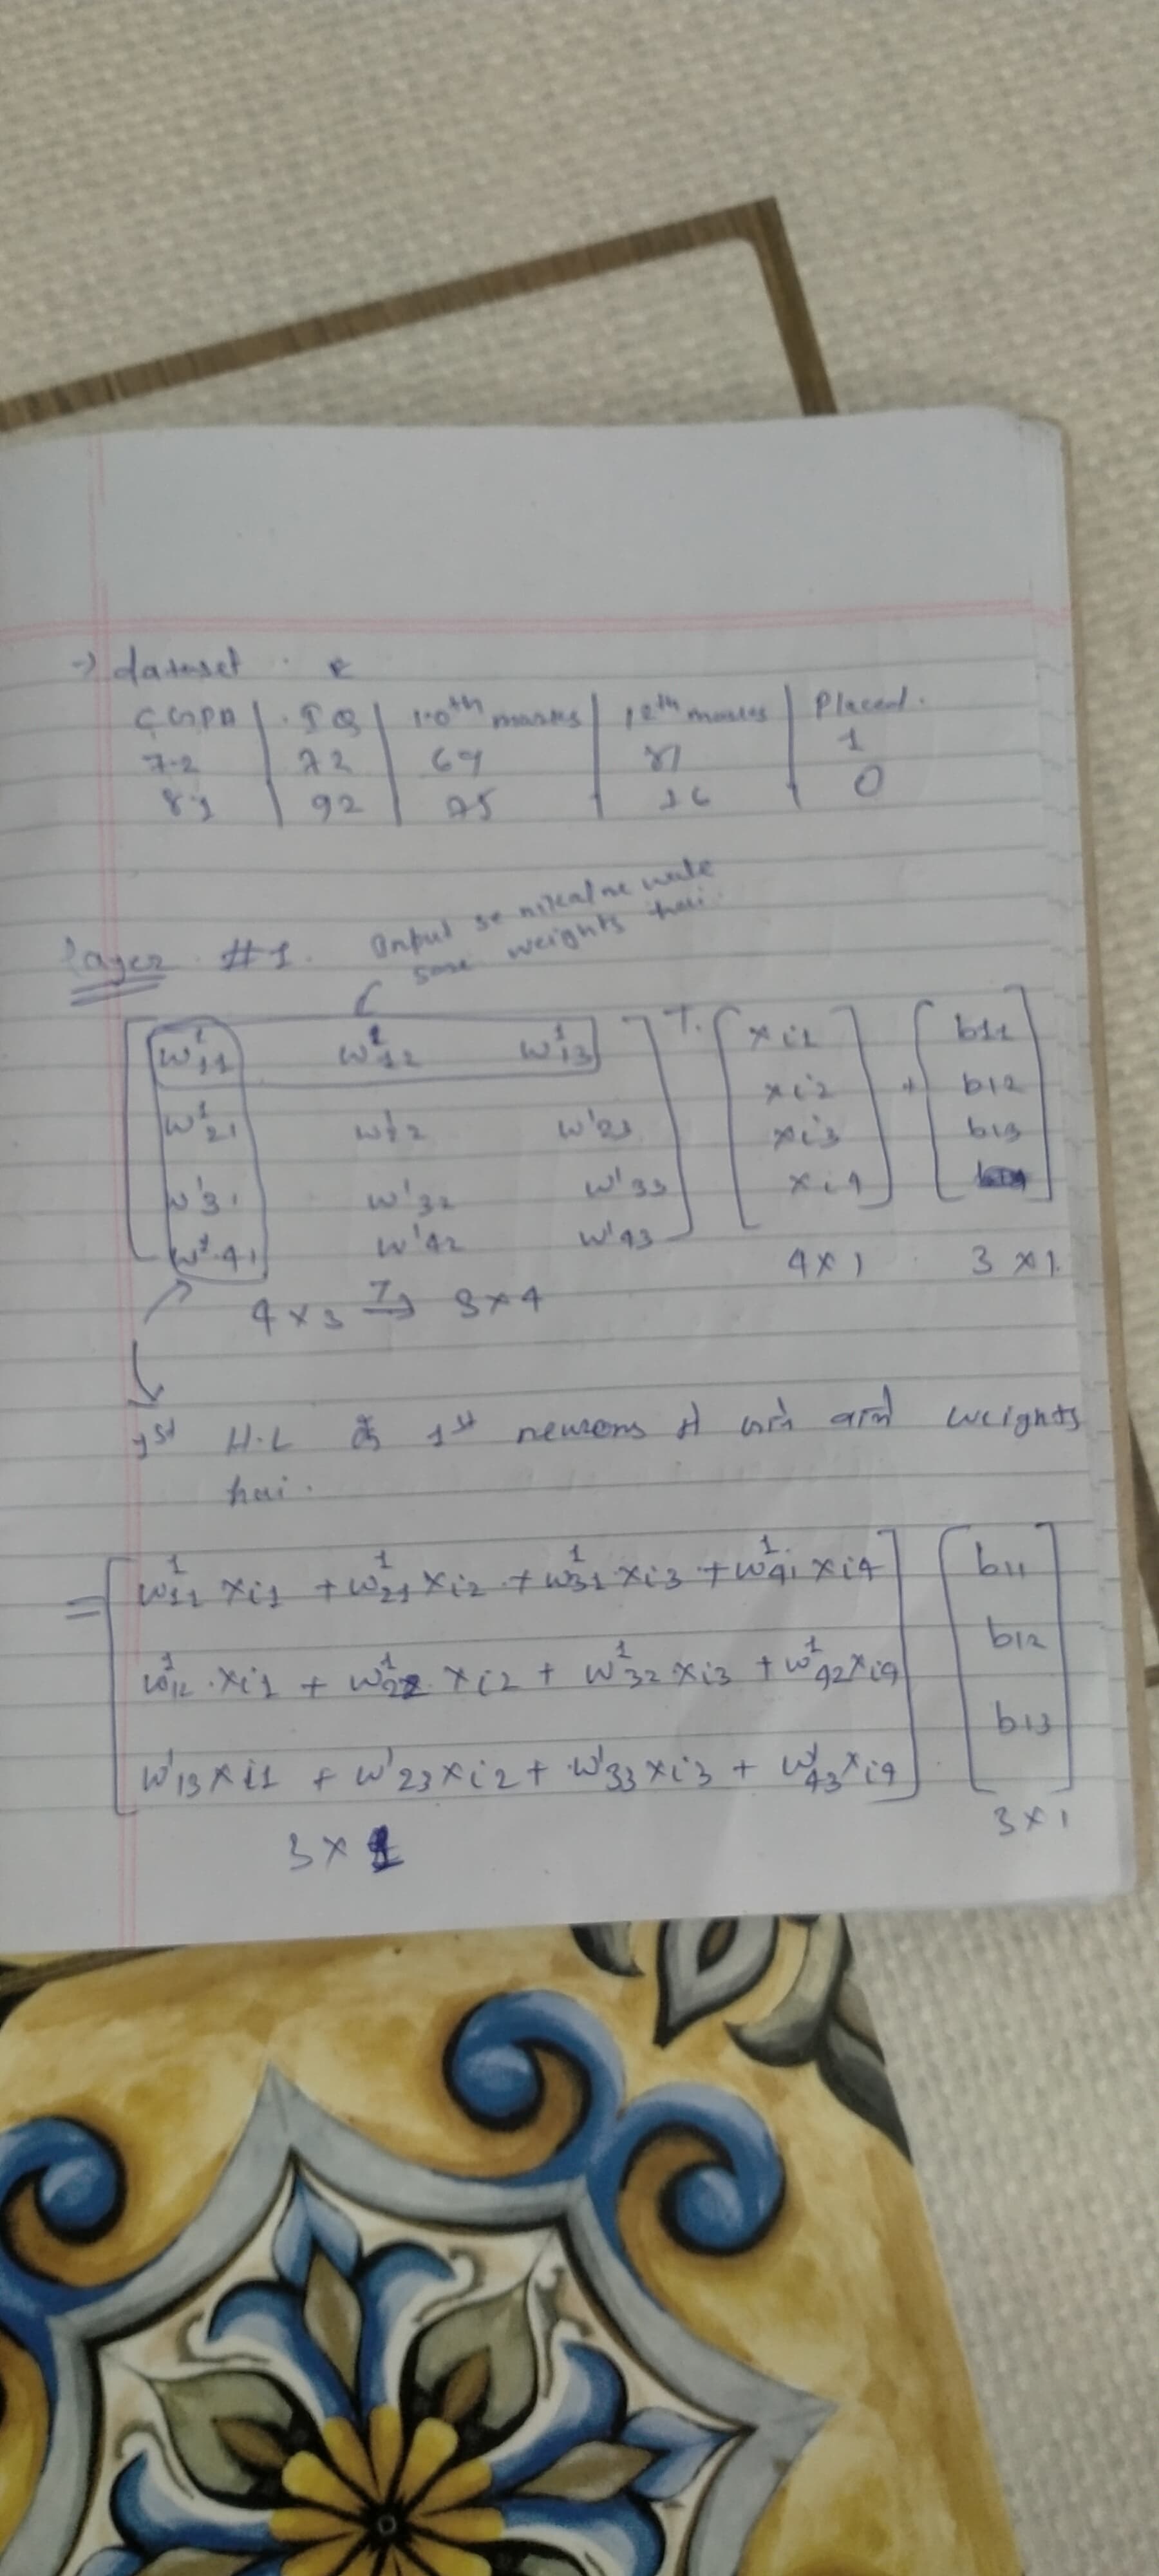 → dataset
CGPA | IQ | 10th marks | 12th marks | Placed.
7.2 | 72 | 69 | 81 | 1
8.1 | 92 | 75 | 76 | 0
Layer #1. Input se nikalne wale
sare weights hai.
[ w¹11 w¹12 w¹13 ]T. [ xi1 ] + [ b11 ]
w¹21 w¹22 w¹23 xi2 b12
w¹31 w¹32 w¹33 xi3 b13
w¹41 w¹42 w¹43 xi4
4×3 T→ 3×4 4×1 3×1
1st H.L के 1st neurons में आने वाले weights
hai.
= [ w¹11 xi1 + w¹21 xi2 + w¹31 xi3 + w¹41 xi4 ] [ b11 ]
w¹12 . xi1 + w¹22 xi2 + w¹32 xi3 + w¹42 xi4 b12
w¹13 xi1 + w¹23 xi2 + w¹33 xi3 + w¹43 xi4 b13
3×1 3×1